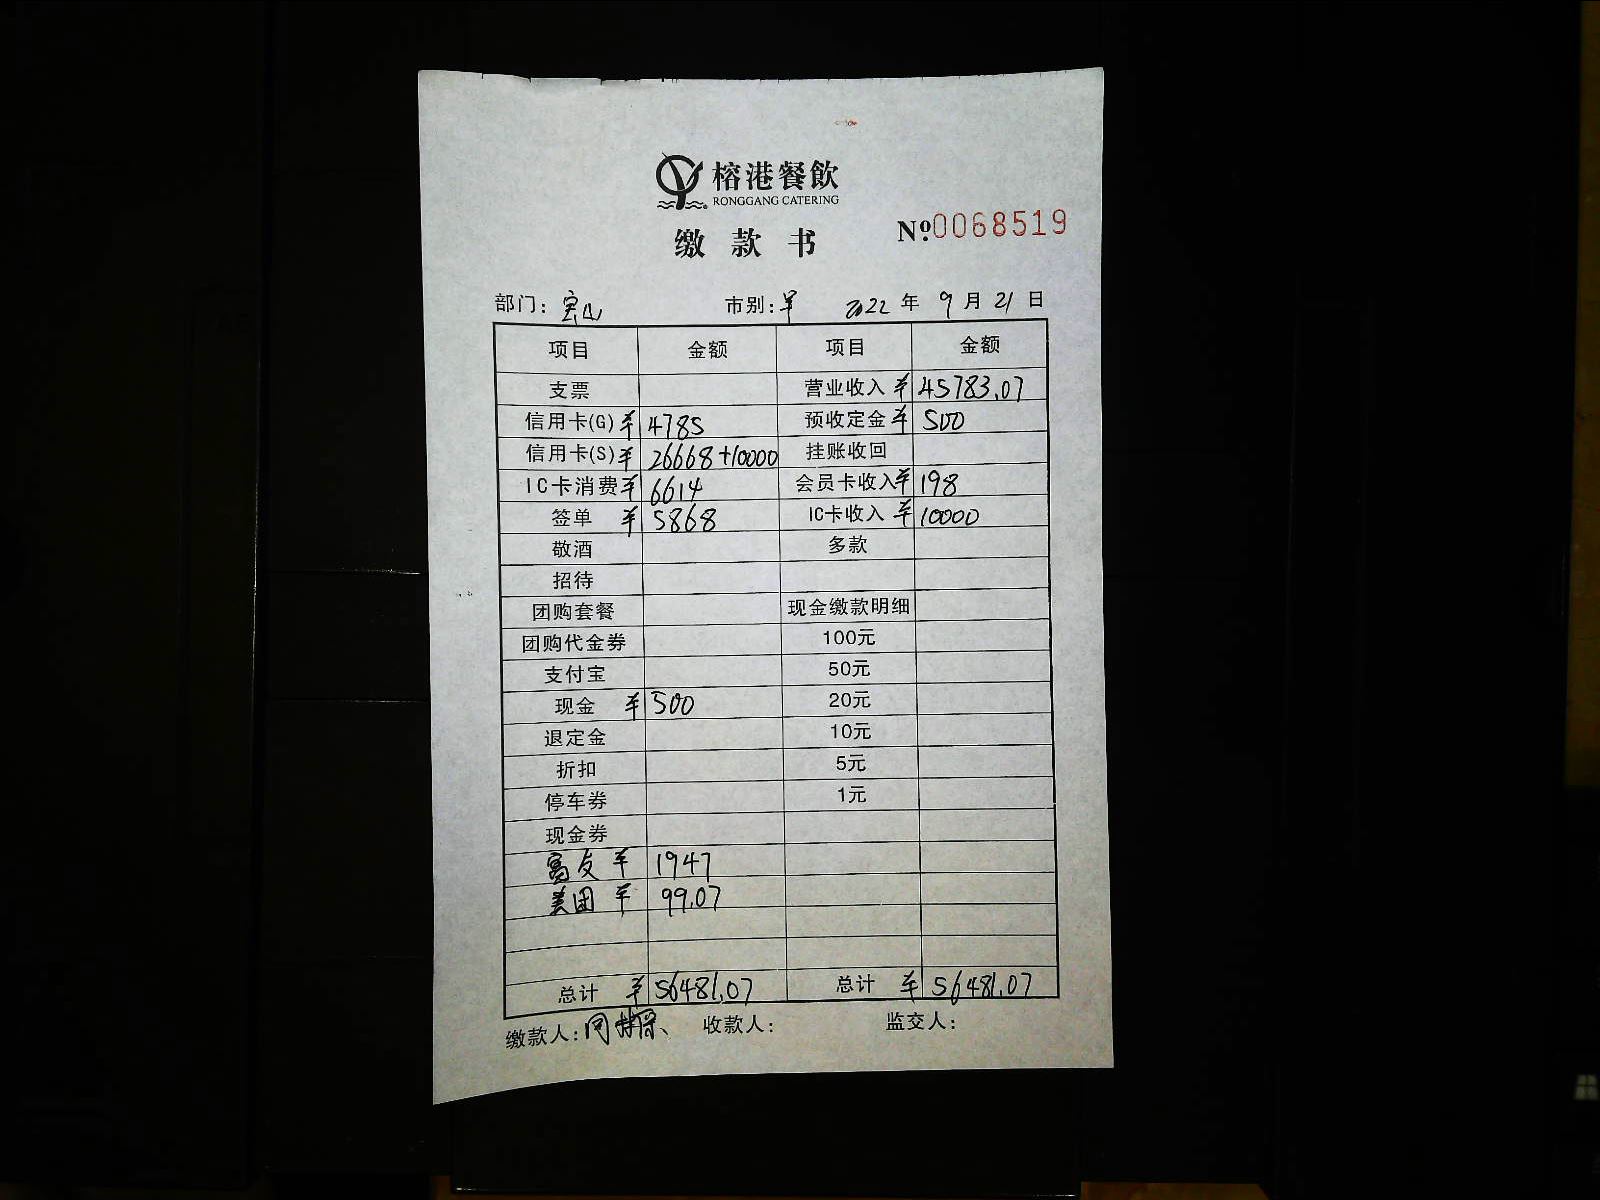 榕港餐飲
RONGGANG CATERING
缴款书 №0068519
部门：宝山 市别：早 2022年9月21日
项目 金额 项目 金额
支票 营业收入 ¥ 45783.07
信用卡(G) ¥ 4785 预收定金 ¥ 500
信用卡(S) ¥ 26668+10000 挂账收回
IC卡消费 ¥ 6614 会员卡收入 ¥ 198
签单 ¥ 5868 IC卡收入 ¥ 10000
敬酒 多款
招待
团购套餐 现金缴款明细
团购代金券 100元
支付宝 50元
现金 ¥ 500 20元
退定金 10元
折扣 5元
停车券 1元
现金券
¥ 1947
美团 ¥ 99.07
总计 ¥ 56481.07 总计 ¥ 56481.07
缴款人： 收款人： 监交人：